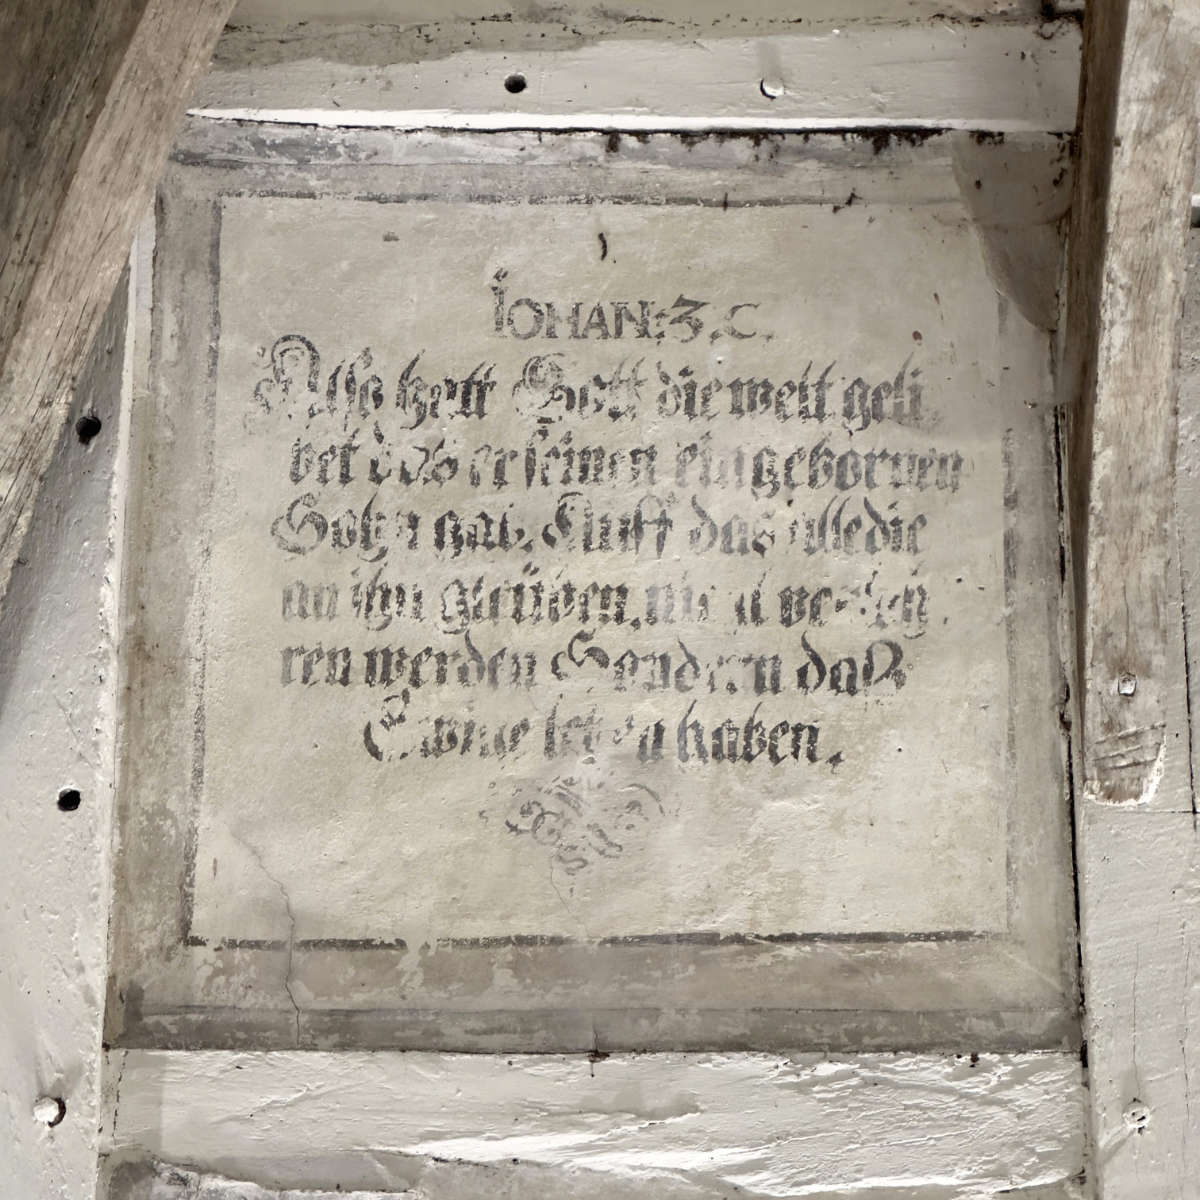 IOHAN: 3. C.
Also hatt Gott die welt geli
bet das er seinen eingebornen
Sohn gab. Auff das alle die
an ihn gleüben. nicht verloh
ren werden Sondern daß
Ewige leben haben.